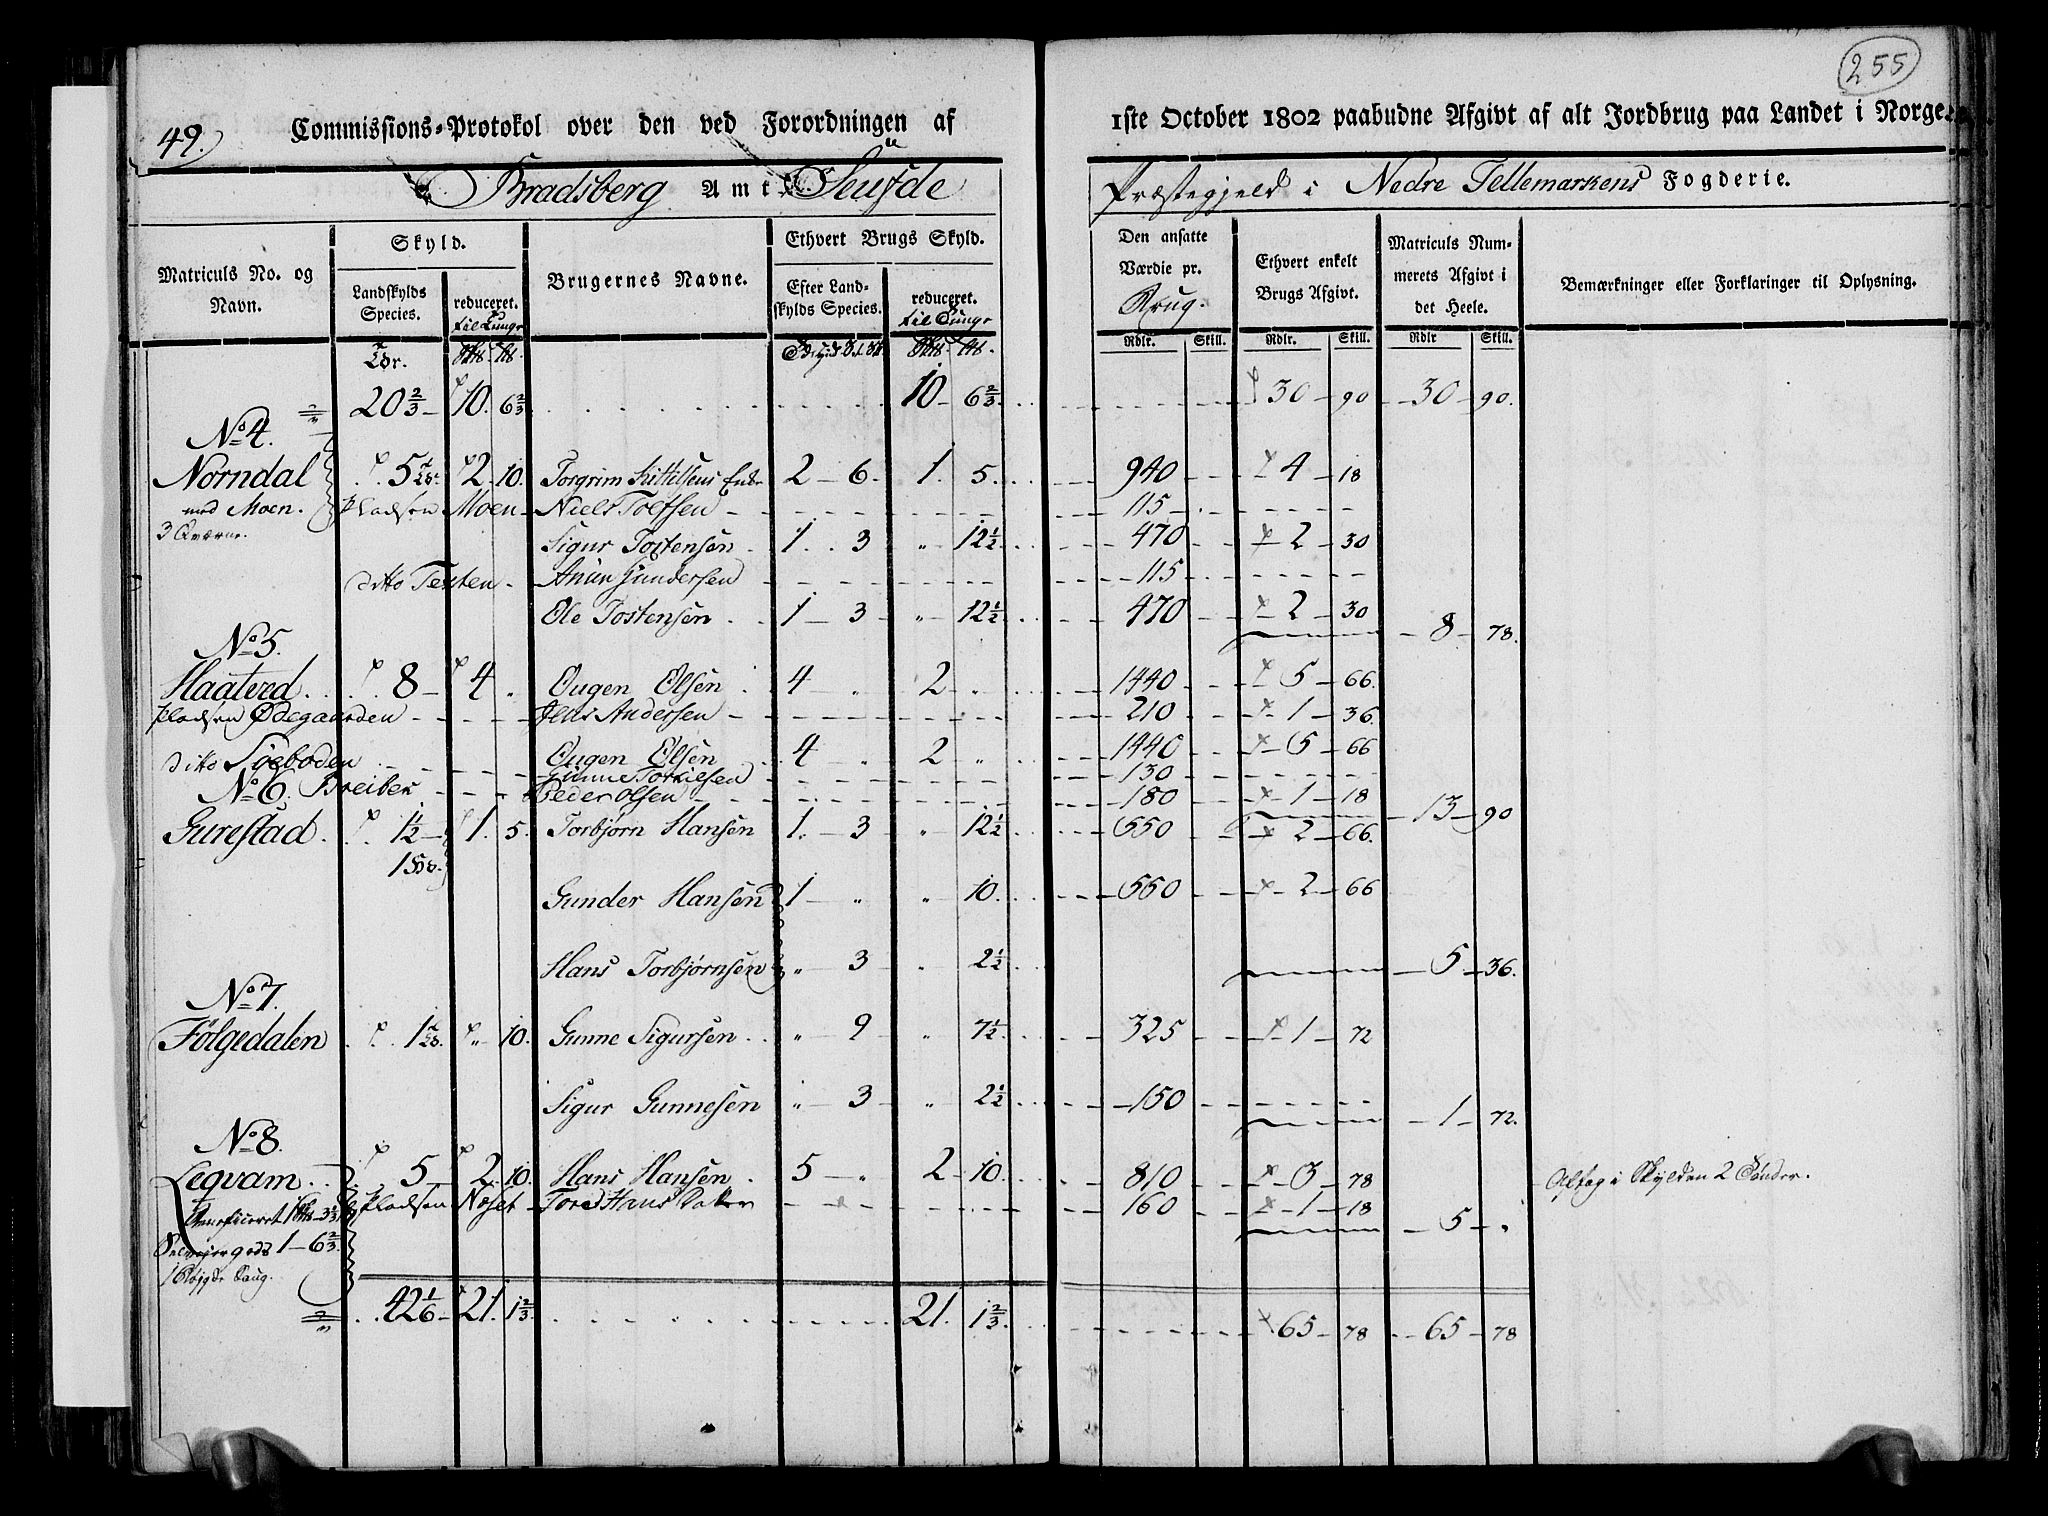 255
49. Commissions-Protokol over den ved Forordningen af 1ste October 1802 paabudne Afgivt af alt Jordbrug paa Landet i Norge.
Bradsberg Amt Seufde Præstegjeld i Nedre Tellemarkens Fogderie.
Matriculs No. og Navn. Skyld. Brugernes Navne. Ethvert Brugs Skyld. Den ansatte Værdie pr. Brug. Ethvert enkelt Brugs Afgivt. Matriculs Nummerets Afgivt i det Heele. Bemærkninger eller Forklaringer til Oplysning.
Landskylds Species. reduceret. til Tunge Efter Landskylds Species. reduceret. til Tunge
Rdlr. Skill. Rdlr. Skill. Rdlr Skill.
20 2/3 10. 6 2/3 10 6 2/3 30 90 30 90.
No 4.
Norndal 5 2. 10. Torgrim Kittilsens Enke 2 6. 1. 5. 940 4 18
med Moen. Pladsen Moen Niels Tolfsen 115
3 Qværne. Sigur Tostensen 1. 3 " 12 1/2 470 2 30
ditto Texten Anun Gundersen 115
Ole Tostensen 1 3 " 12 1/2 470 2 30 8 78.
No 5.
Haatved 8 4 " Ougen Olsen 4 " 2 " 1440 5 66.
Pladsen Ødegaarden Jens Andersen 210 1 36.
ditto Søeboden Ougen Olsen 4 " 2 " 1440 5 66
Gunne Torkielsen 130
No 6. Breiber Peder Olsen 180 1 18 13 90
Gurestad 1 1/2 1. 5. Torbjørn Hansen 1. 3 " 12 1/2 550 2 66.
Gunder Hansen 1 " " 10. 550 2 66
Hans Torbjørnsen " 3 " 2 1/2 5 36.
No 7.
Følgedalen 1 " 10. Gunne Sigursen " 9 " 7 1/2 325 1 72
Sigur Gunnesen " 3 " 2 1/2 150 1 72.
No 8.
Leqvam 5 2. 10. Hans Hansen 5 " 2 10. 810 3 78 Aftag i Skylden 2 Tønder.
Pladsen Næset Tore Hans Datter 160 1 18 5 "
1 6 2/3
1 Saug.
42 1/6 21. 1 2/3 21. 1 2/3 65 78 65 78